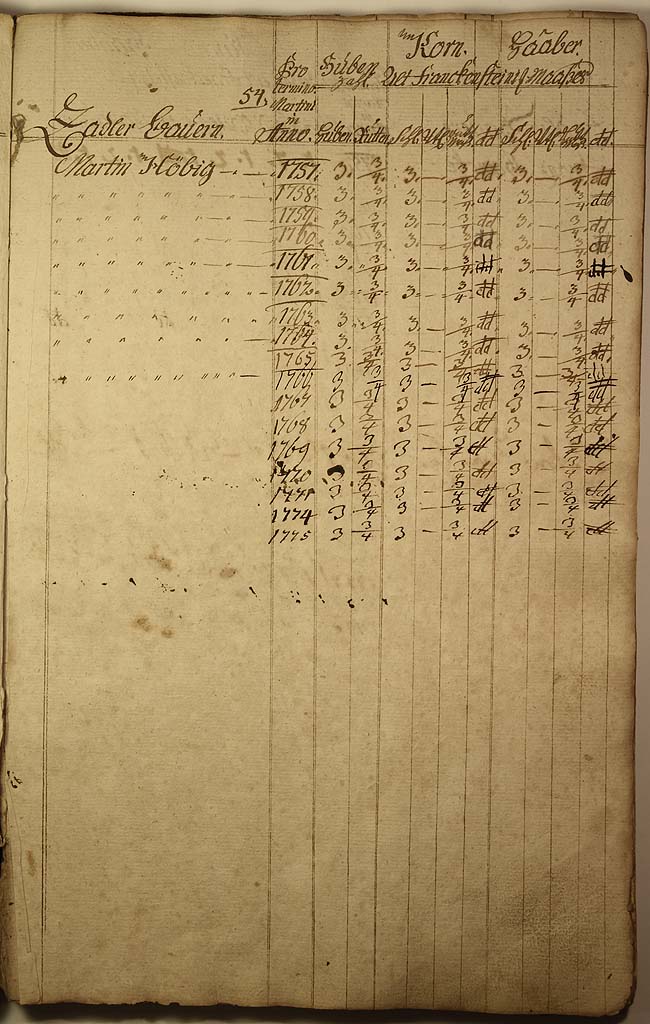 Korn. Haaber.
Pro Hüben
termino Zahl. Franckensteins. Maaßes
54. Martini
Zadler Bauern. Anno. Hüben Rutten dd dd.
Martin Höbig 1757. 3. 3/4. 3. — 3/4. dd 3. — 3/4. dd
" " " " " " 1758. 3. 3/4. 3. — 3/4. dd 3. — 3/4. dd
" " " " " " 1759. 3. 3/4. 3. — 3/4. dd 3. — 3/4. dd
" " " " " " 1760. 3. 3/4. 3. — 3/4. dd 3. — 3/4. dd
" " " " " " 1761. 3. 3/4. 3. — 3/4. dd 3. — 3/4 dd
" " " " " " 1762. 3 3/4 3. — 3/4 dd 3 — 3/4 dd
" " " " " " 1763. 3. 3/4. 3 — 3/4 dd 3 — 3/4 dd
" " " " " " 1764. 3. 3/4. 3 — 3/4 dd. 3. — 3/4 dd.
1765. 3. 3/4 3 — 3/4 dd 3 — 3/4
" " " " " " 1766 3 3/4 3 — 3/4 dd 3 — 3/4 dd
1767 3 3/4 3 — 3/4 dd 3 — 3/4 dd
1768 3 3/4 3 — 3/4 dd 3 — 3/4 dd
1769 3 3/4 3 — 3/4 dd 3 — 3/4 dd
1770 3 3/4 3 — 3/4 dd 3 — 3/4 dd
3 3/4 3 — 3/4 dd 3 — 3/4 dd
1774 3 3/4 3 — 3/4 dd 3 — 3/4 dd
1775 3 3/4 3 — 3/4 dd 3 — 3/4 dd